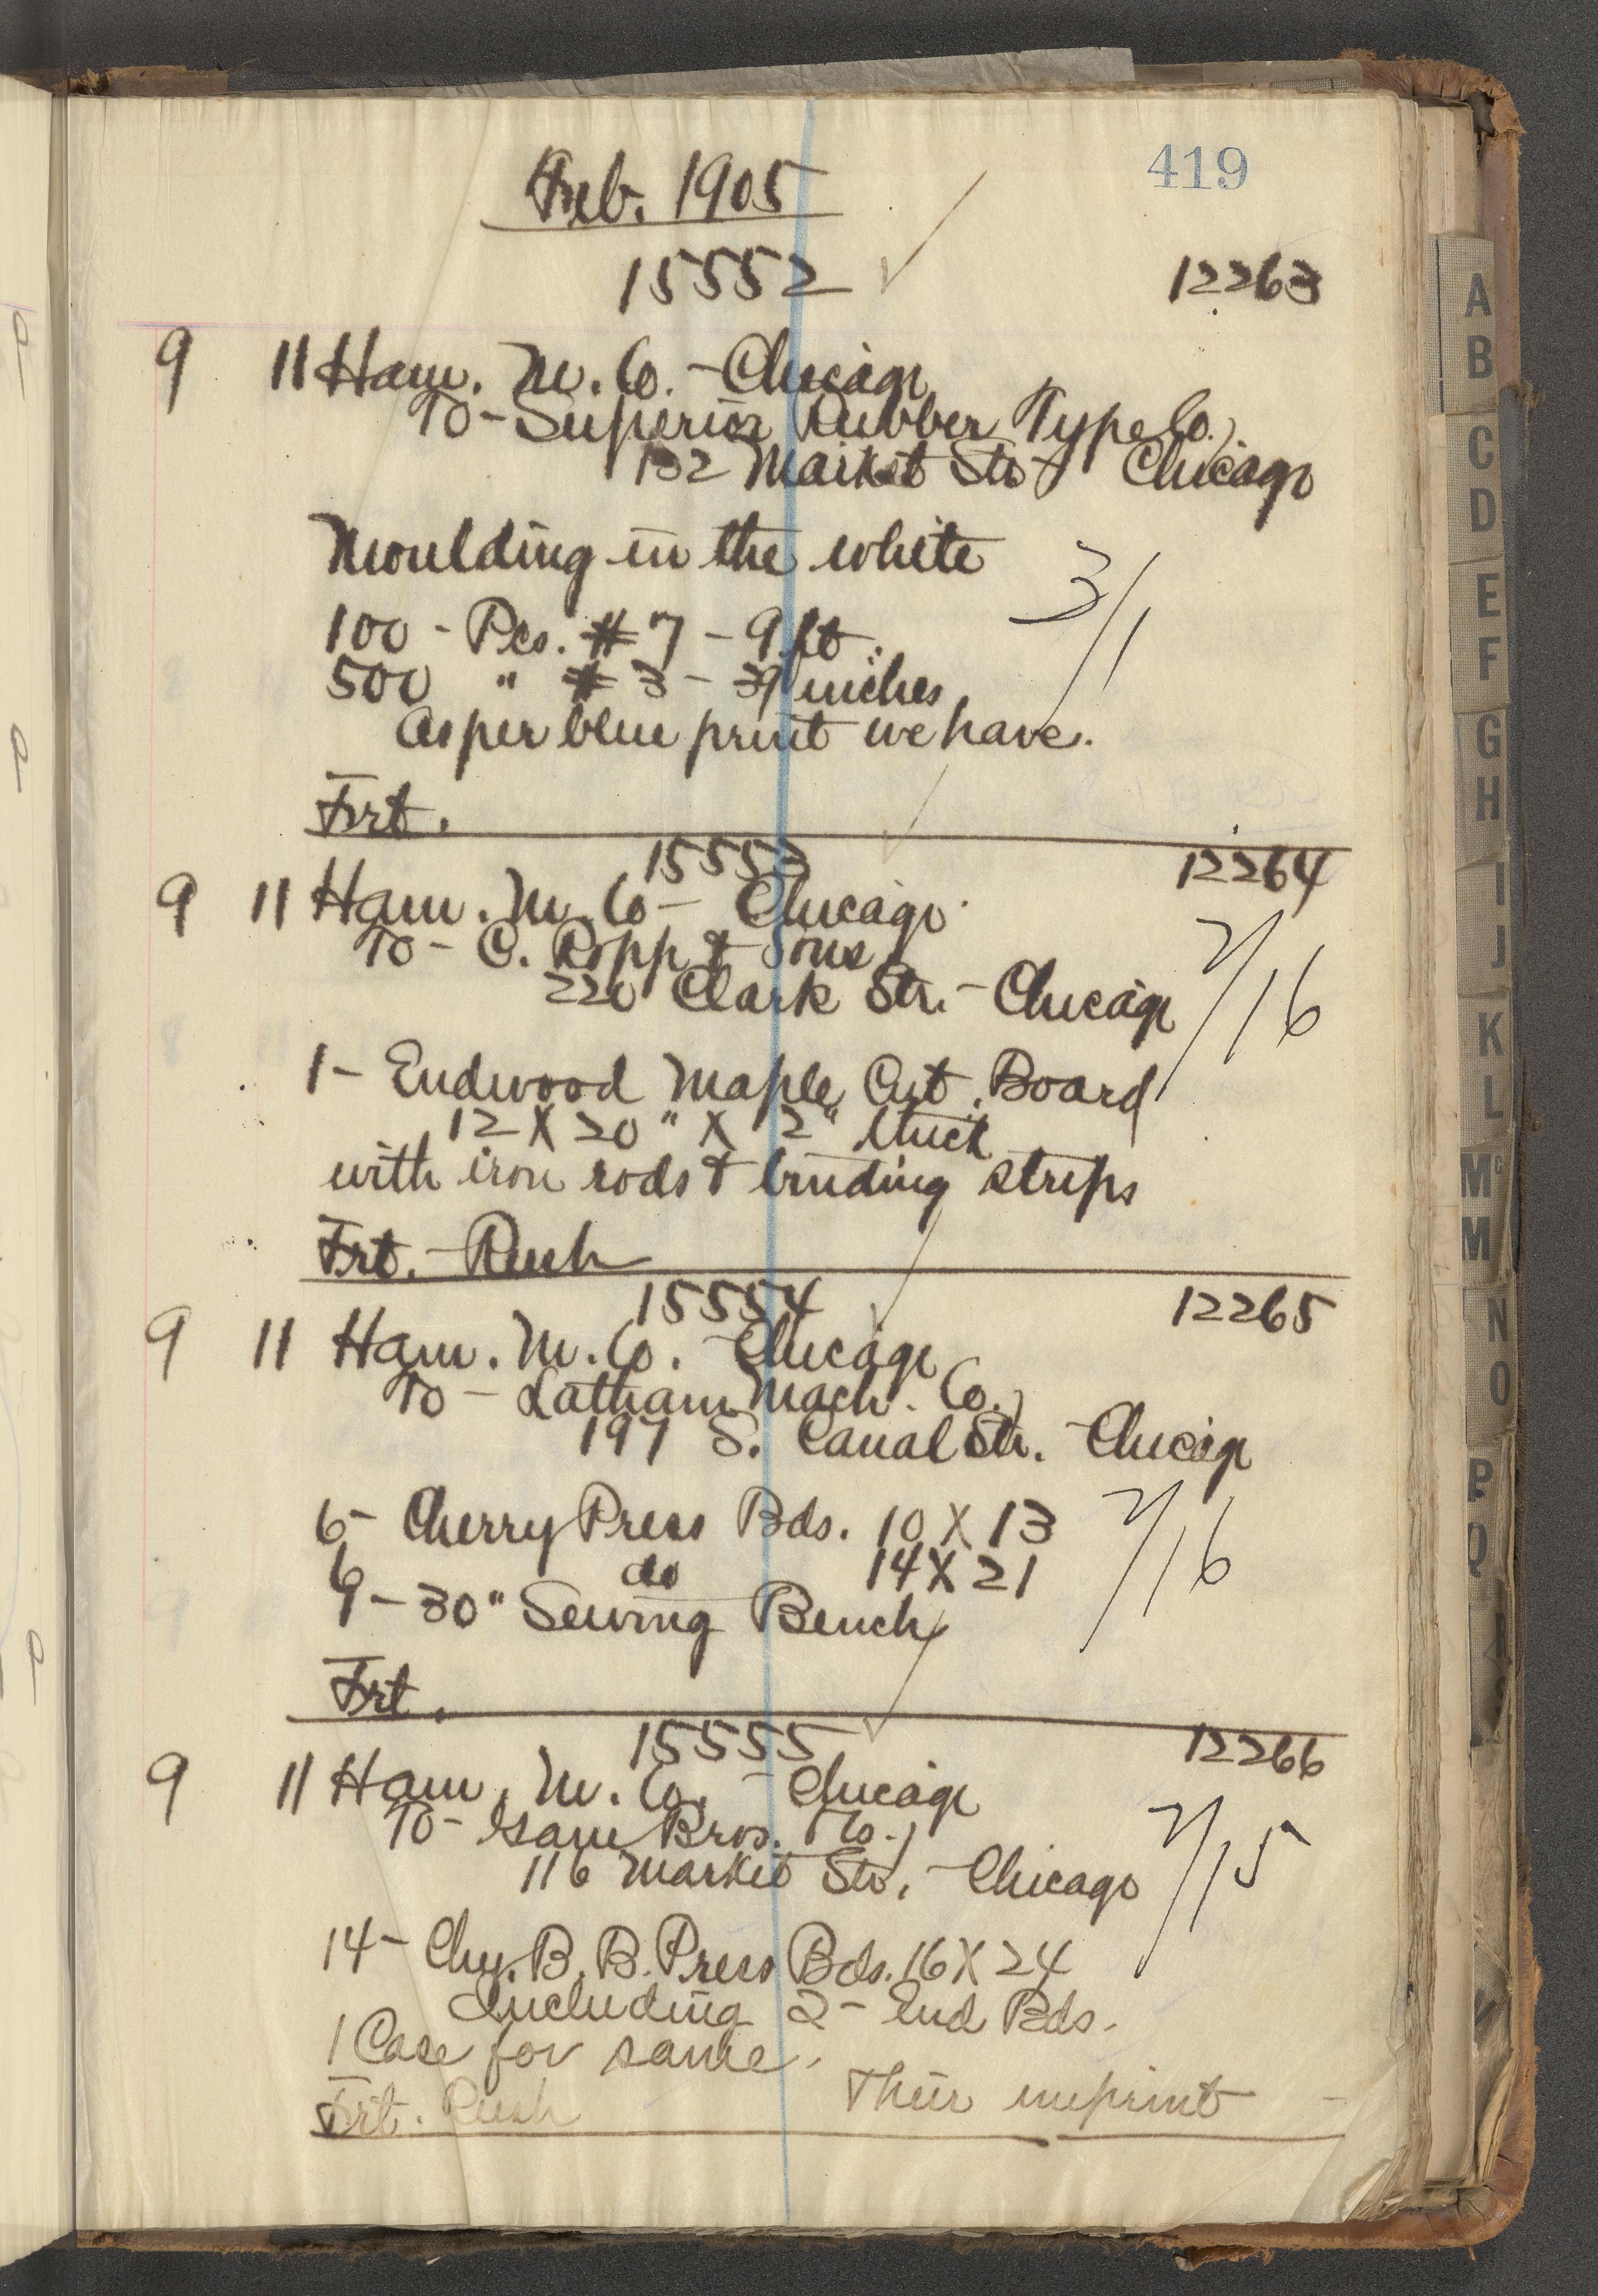 419
Feb. 1905
15552 ✓ 12263
9 11 Ham. M. Co. - Chicago
To - Superior Rubber Type Co.,
132 Market Str. Chicago
Moulding in the white
3/1
100 - Pcs. #7 - 9 ft.
500 " #3 - 39 inches
As per blue print we have.
Frt.
15553 ✓ 12264
9 11 Ham. M. Co - Chicago
To - C. Ropp & Sons
220 Clark Str. - Chicago
2/16
1 - Endwood Maple Cut. Board
12 X 20" X 2" thick
with iron rods & binding strips
Frt. - Rush
15554 ✓ 12265
9 11 Ham. M. Co. - Chicago
To - Latham Mach. Co.,
197 S. Canal Str. - Chicago
6 - Cherry Press Bds. 10 X 13
2/16
6 do 14 X 21
30" Sewing Bench
Frt.
15555 ✓ 12266
9 11 Ham. M. Co. - Chicago
To - Gane Bros. & Co.,
116 Market Str. - Chicago
2/15
14 - Chy. B. B. Press Bds. 16 X 24
Including 2 - End Bds.
1 Case for same.
Their imprint -
Frt. Rush
A
B
C
D
E
F
G
H
I
J
K
L
Mc
M
N
O
P
Q